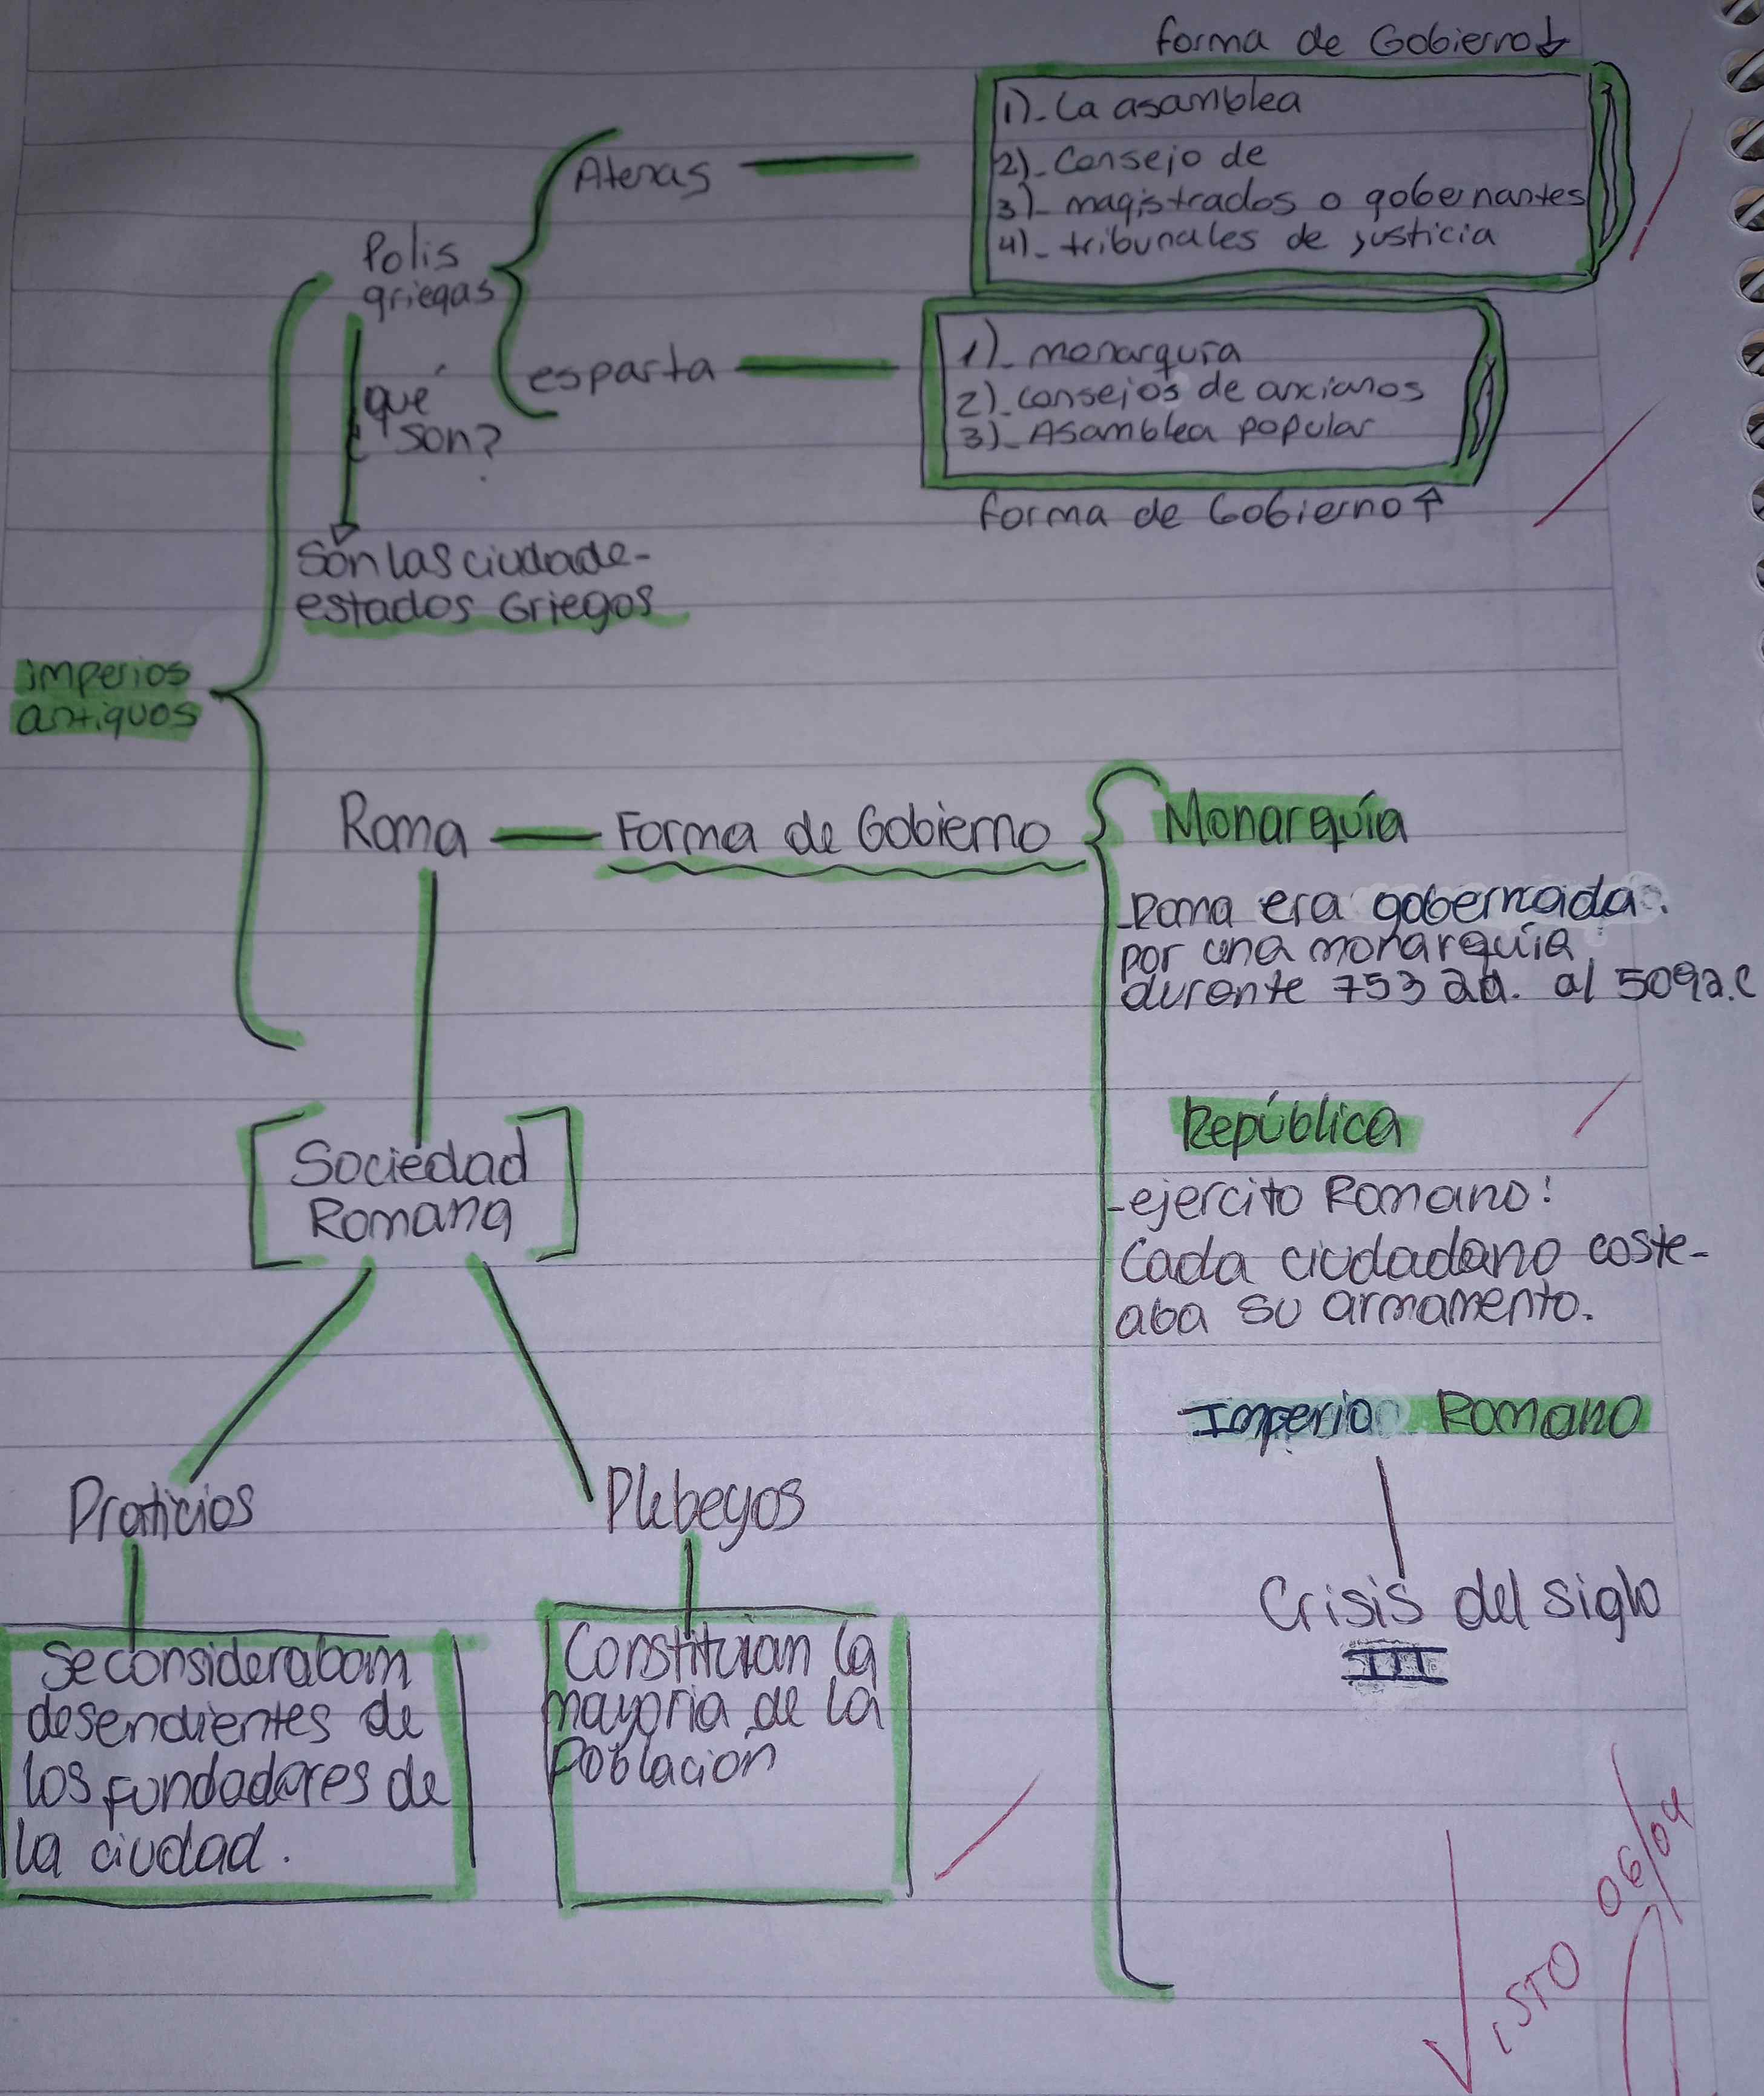 forma de Gobierno↓
1)_ La asamblea
2)_ Consejo de
3)_ magistrados o gobernantes
4)_ tribunales de justicia
Atenas
Polis
griegas
esparta
1)_ monarquía
2)_consejos de ancianos
3)_ Asamblea popular
forma de Gobierno↑
qué
¿ son?
Son las ciudade-
estados Griegos
imperios
antiguos
Roma — Forma de Gobierno
Monarquía
-Roma era gobernada.
por una monarquía
durante 753 a.d. al 509a.C
Sociedad
Romana
República
-ejercito Romano:
Cada ciudadano coste-
aba su armamento.
Imperio Romano
Crisis del siglo
III
Praticios
Plebeyos
Se considerabam
desendientes de
los fundadores de
la ciudad.
Constituian la
mayoria de la
Poblacion
VISTO 06/04